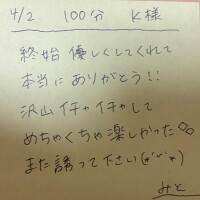 4/2 100分 K様
終始 優しくしてくれて
本当に ありがとう!!
沢山 イチャイチャして
めちゃくちゃ楽しかった
また誘って下さい(*˘︶˘*)
みと